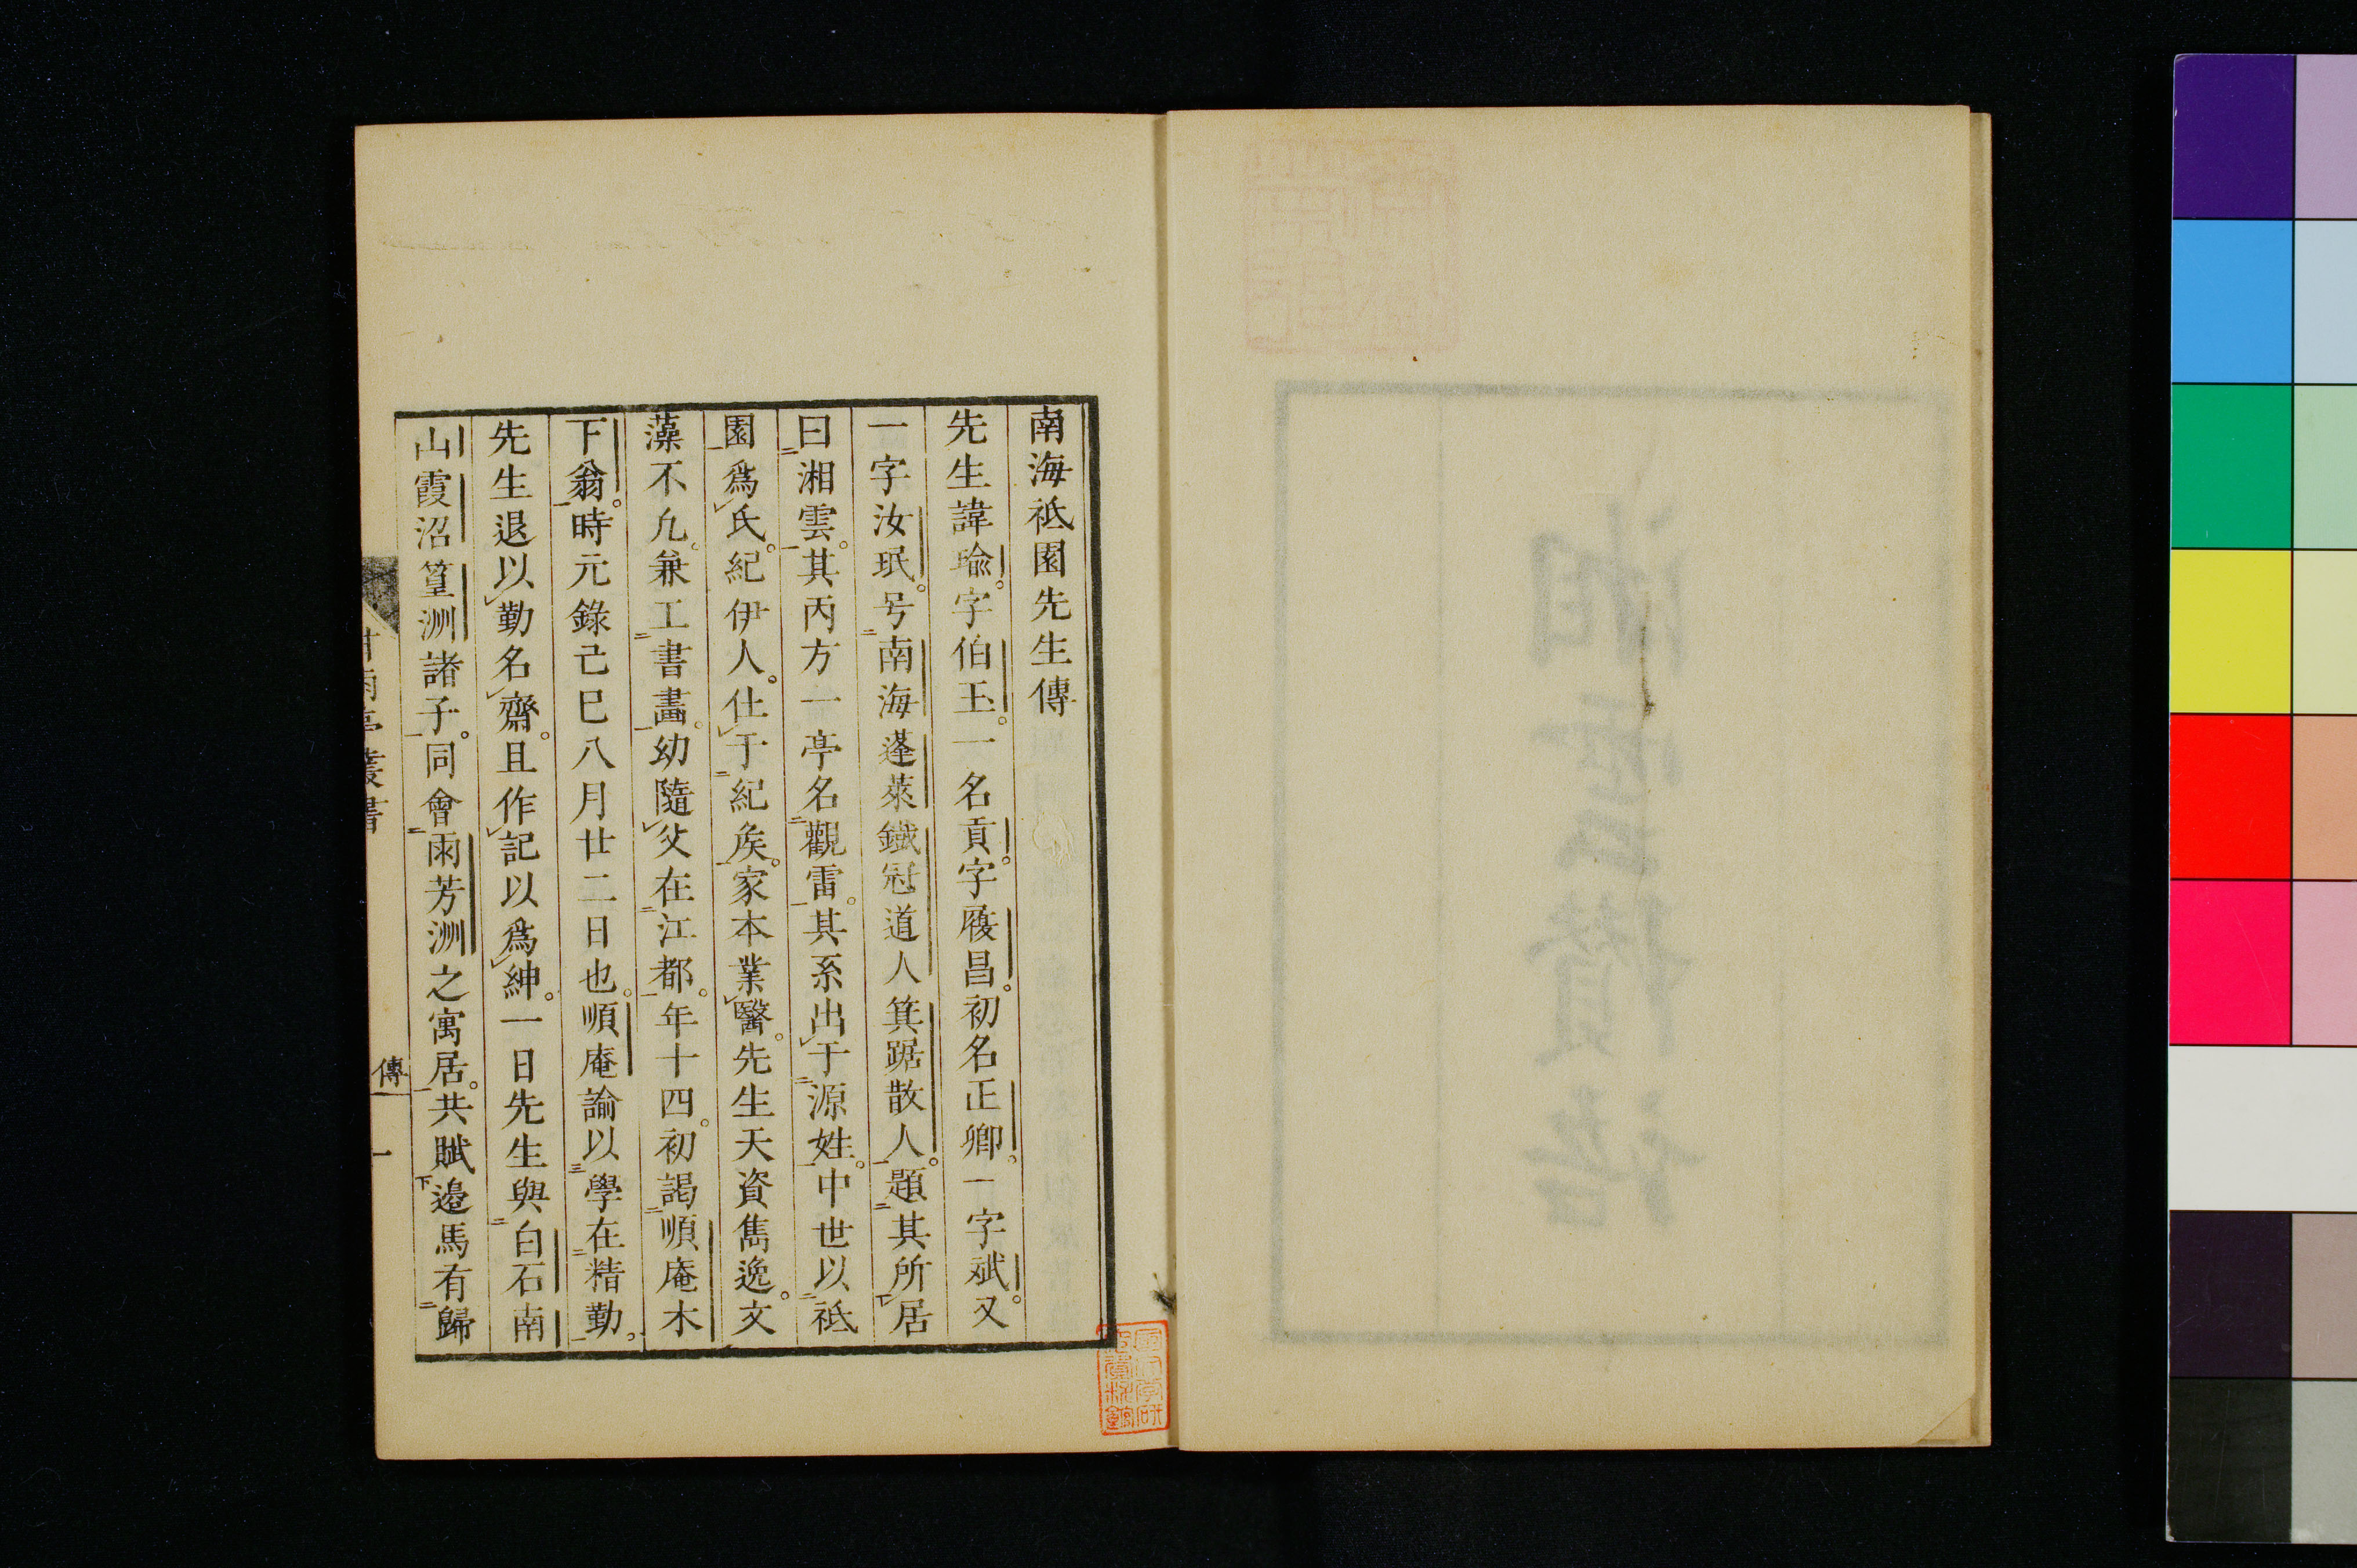 南海祗園先生傳
先生諱瑜。字伯玉。一名貢。字履昌。初名正卿。一字斌。又
一字汝珉。号南海蓬萊鐵冠道人箕踞散人。題其所居
曰湘雲。其丙方一亭名觀雷。其系出于源姓。中世以祗
園爲氏。紀伊人。仕于紀矦。家本業醫。先生天資雋逸。文
藻不凢。兼工書畵。幼隨父在江都。年十四。初謁順庵木
下翁。時元錄己巳八月廿二日也。順庵諭以學在精勤。
先生退以勤名齋。且作記以爲紳。一日先生與白石南
山霞沼篁洲諸子。同會雨芳洲之寓居。共賦邉馬有歸
甘雨亭叢書
傳
一